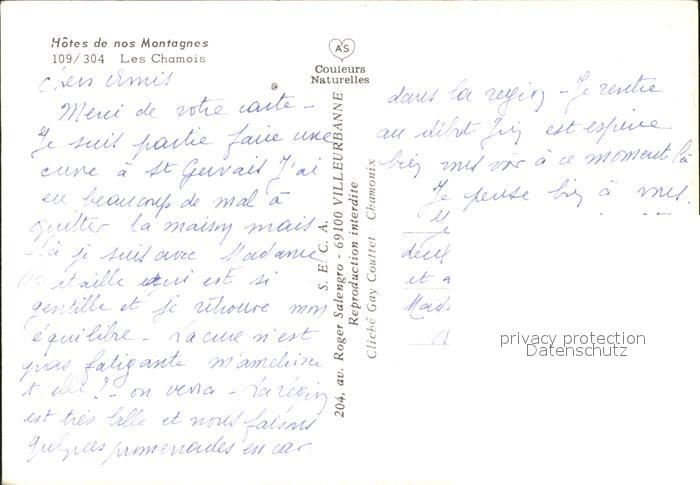 Hôtes de nos Montagnes
109/304 Les Chamois
AS
Couleurs
Naturelles
Chers Amis
Merci de votre carte -
Je suis partie faire une
cure à St Gervais J'ai
eu beaucoup de mal à
quitter la maison mais
là je suis avec Madame
Bataille qui est si
gentille et je retrouve mon
équilibre - La cure n'est
pas fatigante m'améliore
t-elle? - on verra - La région
est très belle et nous faisons
quelques promenades en car.
dans la région - Je rentre
au début Juin et espère
bien vous voir à ce moment là
Je pense bien à vous.
deux
et
Mad
S. E. C. A.
204, av. Roger Salengro - 69100 VILLEURBANNE
Reproduction interdite
Cliché Gay Couttet Chamonix
privacy protection
Datenschutz